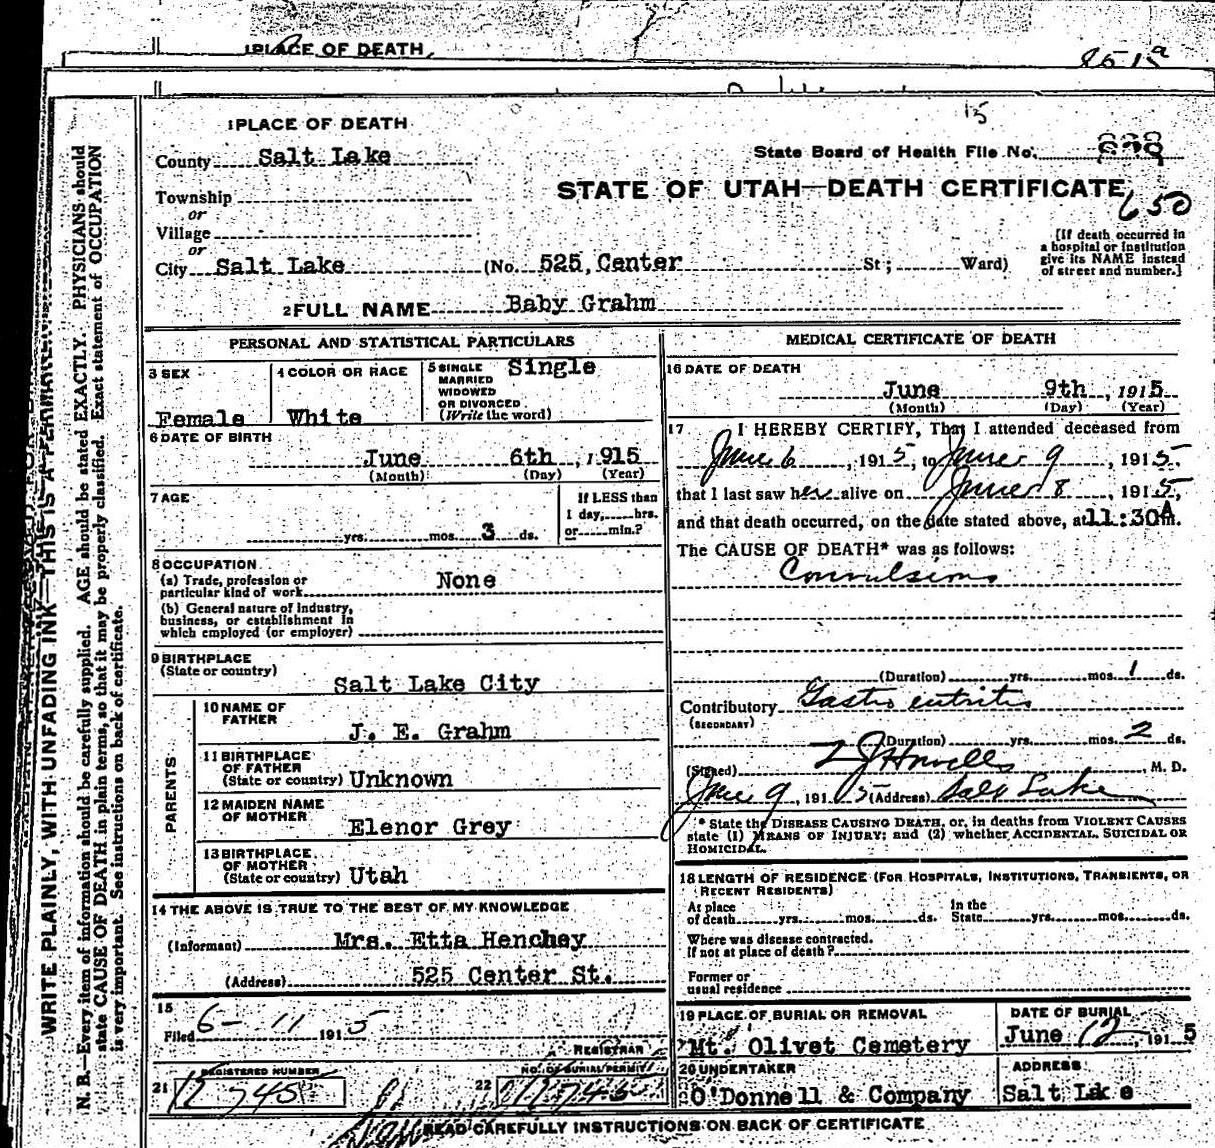 1 PLACE OF DEATH
1 PLACE OF DEATH
15
County Salt Lake
State Board of Health File No.
STATE OF UTAH—DEATH CERTIFICATE
650
Township
or
Village
or
City Salt Lake (No. 525, Center St; Ward)
[If death occurred in
a hospital or institution
give its NAME instead
of street and number.]
2 FULL NAME Baby Grahm
PERSONAL AND STATISTICAL PARTICULARS
3 SEX
Female
4 COLOR OR RACE
White
5 SINGLE
MARRIED
WIDOWED
OR DIVORCED
(Write the word)
Single
6 DATE OF BIRTH
June 6th, 1915
(Month) (Day) (Year)
7 AGE
yrs. mos. 3 ds.
If LESS than
1 day, hrs.
or min.?
8 OCCUPATION
(a) Trade, profession or
particular kind of work None
(b) General nature of industry,
business, or establishment in
which employed (or employer)
9 BIRTHPLACE
(State or country)
Salt Lake City
PARENTS
10 NAME OF
FATHER
J. E. Grahm
11 BIRTHPLACE
OF FATHER
(State or country) Unknown
12 MAIDEN NAME
OF MOTHER
Elenor Grey
13 BIRTHPLACE
OF MOTHER
(State or country) Utah
14 THE ABOVE IS TRUE TO THE BEST OF MY KNOWLEDGE
(Informant) Mrs. Etta Henchey
(Address) 525 Center St.
15
Filed 6-11 1915
REGISTRAR
REGISTERED NUMBER
21 12745
NO. OF BURIAL PERMIT
22
MEDICAL CERTIFICATE OF DEATH
16 DATE OF DEATH
June 9th, 1915
(Month) (Day) (Year)
17 I HEREBY CERTIFY, That I attended deceased from
June 6, 1915, to June 9, 1915.
that I last saw her alive on June 8, 1915,
and that death occurred, on the date stated above, at 11:30 A m.
The CAUSE OF DEATH* was as follows:
Convulsions
(Duration) yrs. mos. 1 ds.
Contributory Gastro entritis
(SECONDARY)
(Duration) yrs. mos. 2 ds.
(Signed) , M. D.
June 9, 1915 (Address) Salt Lake
* State the DISEASE CAUSING DEATH, or, in deaths from VIOLENT CAUSES
state (1) MEANS OF INJURY; and (2) whether ACCIDENTAL, SUICIDAL OR
HOMICIDAL.
18 LENGTH OF RESIDENCE (FOR HOSPITALS, INSTITUTIONS, TRANSIENTS, OR
RECENT RESIDENTS)
At place
of death yrs. mos. ds.
In the
State yrs. mos. ds.
Where was disease contracted.
if not at place of death?
Former or
usual residence
19 PLACE OF BURIAL OR REMOVAL
Mt. Olivet Cemetery
DATE OF BURIAL
June 12, 1915
20 UNDERTAKER
O'Donnell & Company
ADDRESS
Salt Lake
READ CAREFULLY INSTRUCTIONS ON BACK OF CERTIFICATE
WRITE PLAINLY, WITH UNFADING INK—THIS IS A PERMANENT
N. B.—Every item of information should be carefully supplied. AGE should be stated EXACTLY. PHYSICIANS should
state CAUSE OF DEATH in plain terms, so that it may be properly classified. Exact statement of OCCUPATION
is very important. See instructions on back of certificate.